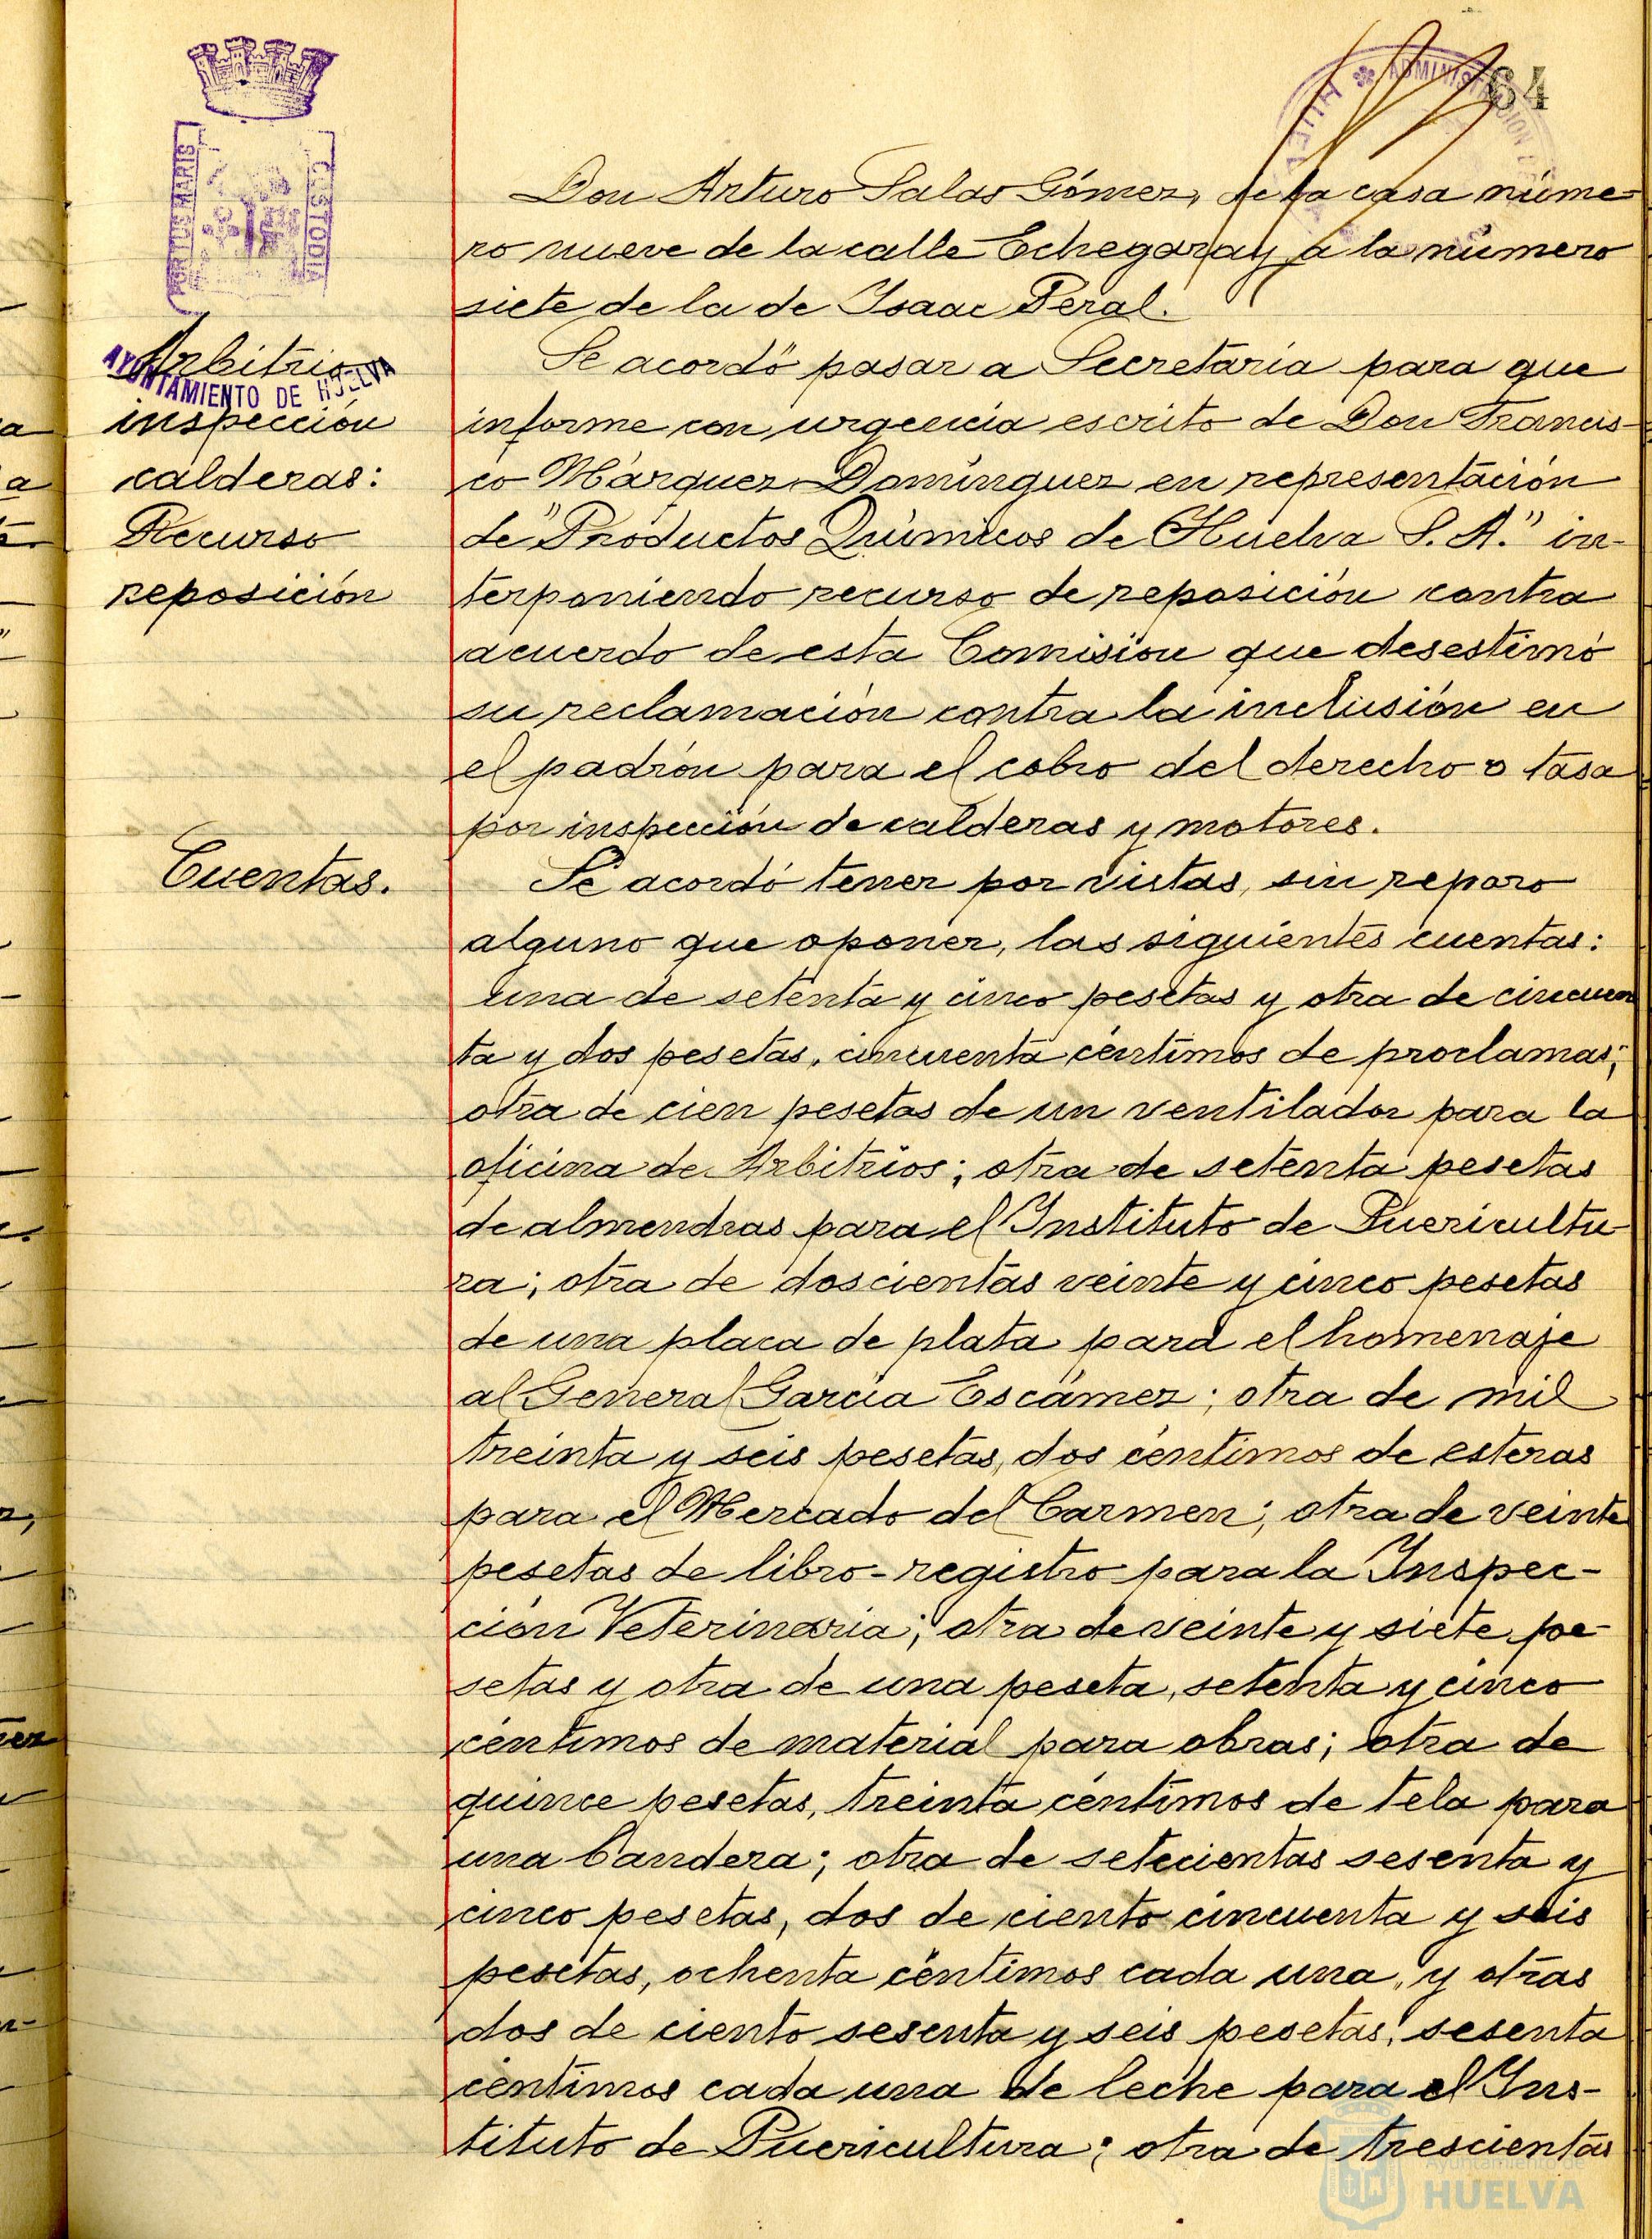 64
ADMINISTRACION
HUEL
PORTUS MARIS
CUSTODIA
AYUNTAMIENTO DE HUELVA
Don Arturo Salas Gómez, de la casa núme-
ro nueve de la calle Echegaray a la número
siete de la de Isaac Peral.
Arbitrio
inspección
calderas:
Recurso
reposición
Se acordó pasar a Secretaría para que
informe con urgencia escrito de Don Francis-
co Márquez Domínguez en representación
de "Productos Químicos de Huelva S. A." in-
terponiendo recurso de reposición contra
acuerdo de esta Comisión que desestimó
su reclamación contra la inclusión en
el padrón para el cobro del derecho o tasa
por inspección de calderas y motores.
Cuentas.
Se acordó tener por vistas, sin reparo
alguno que oponer, las siguientes cuentas:
una de setenta y cinco pesetas y otra de cincuen
ta y dos pesetas, cincuenta céntimos de proclamas;
otra de cien pesetas de un ventilador para la
oficina de Arbitrios; otra de setenta pesetas
de almendras para el Instituto de Puericultu-
ra; otra de doscientas veinte y cinco pesetas
de una placa de plata para el homenaje
al General García Escámez; otra de mil
treinta y seis pesetas, dos céntimos de esteras
para el Mercado del Carmen; otra de veinte
pesetas de libro-registro para la Inspec-
ción Veterinaria; otra de veinte y siete pe-
setas y otra de una peseta, setenta y cinco
céntimos de material para obras; otra de
quince pesetas, treinta céntimos de tela para
una bandera; otra de setecientas sesenta y
cinco pesetas, dos de ciento cincuenta y seis
pesetas, ochenta céntimos cada una, y otras
dos de ciento sesenta y seis pesetas, sesenta
céntimos cada una de leche para el Ins-
tituto de Puericultura; otra de trescientas
Ayuntamiento de
HUELVA